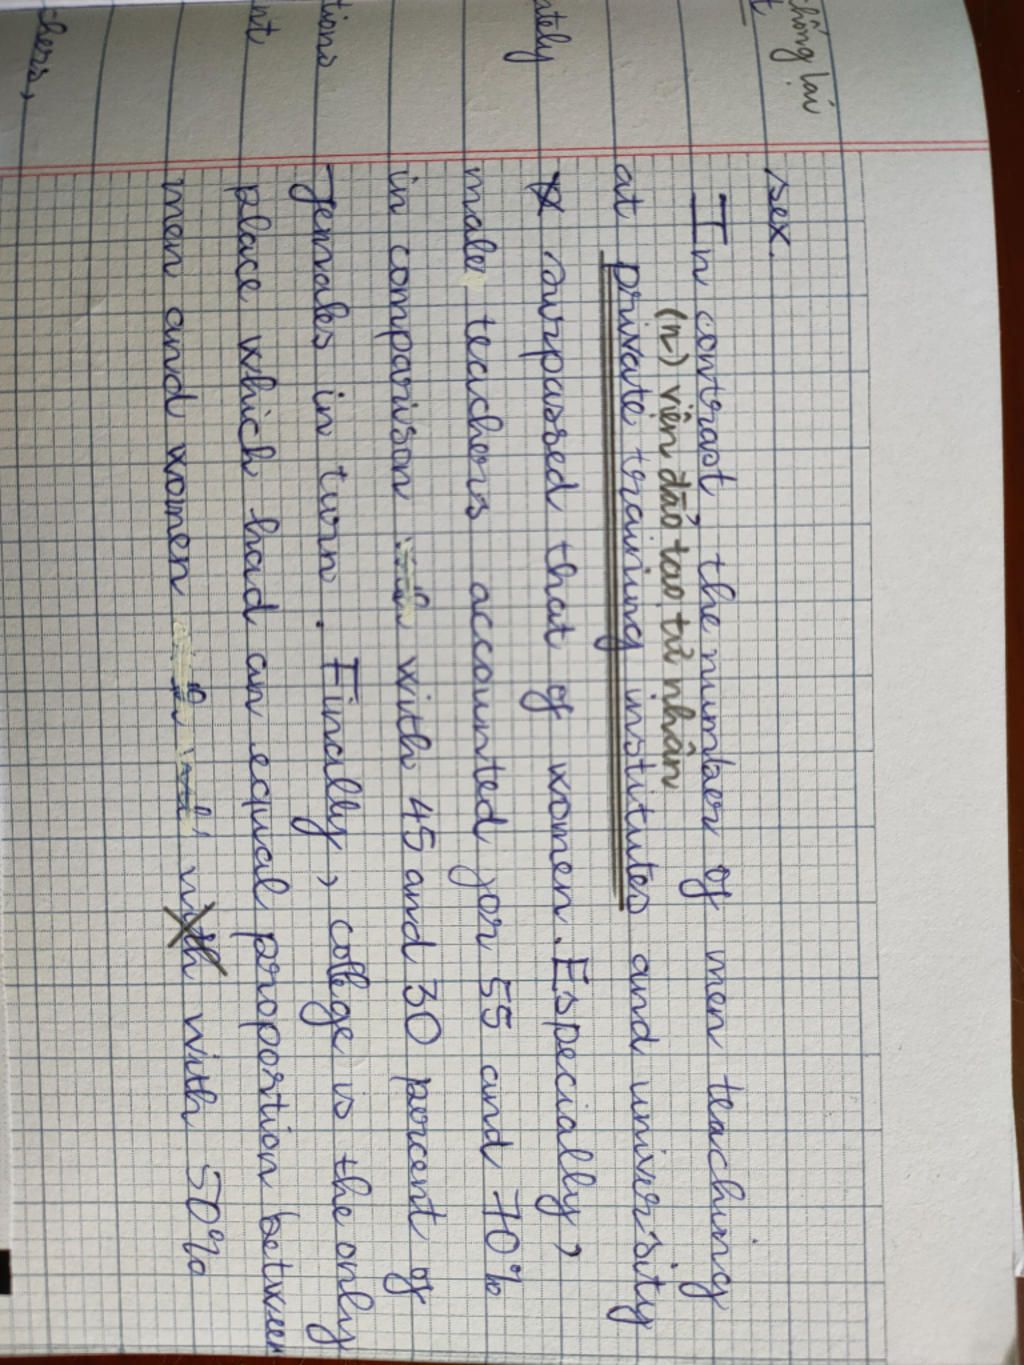 chống lại
t
sex.
In contrast, the number of men teaching
(n) viện đào tạo tư nhân
at private training institutes and university
ately
surpassed that of women. Especially,
male teachers accounted for 55 and 70%
in comparison with 45 and 30 percent of
tions
females in turn. Finally, college is the only
nt
place which had an equal proportion between
men and women with with 50%
chers,